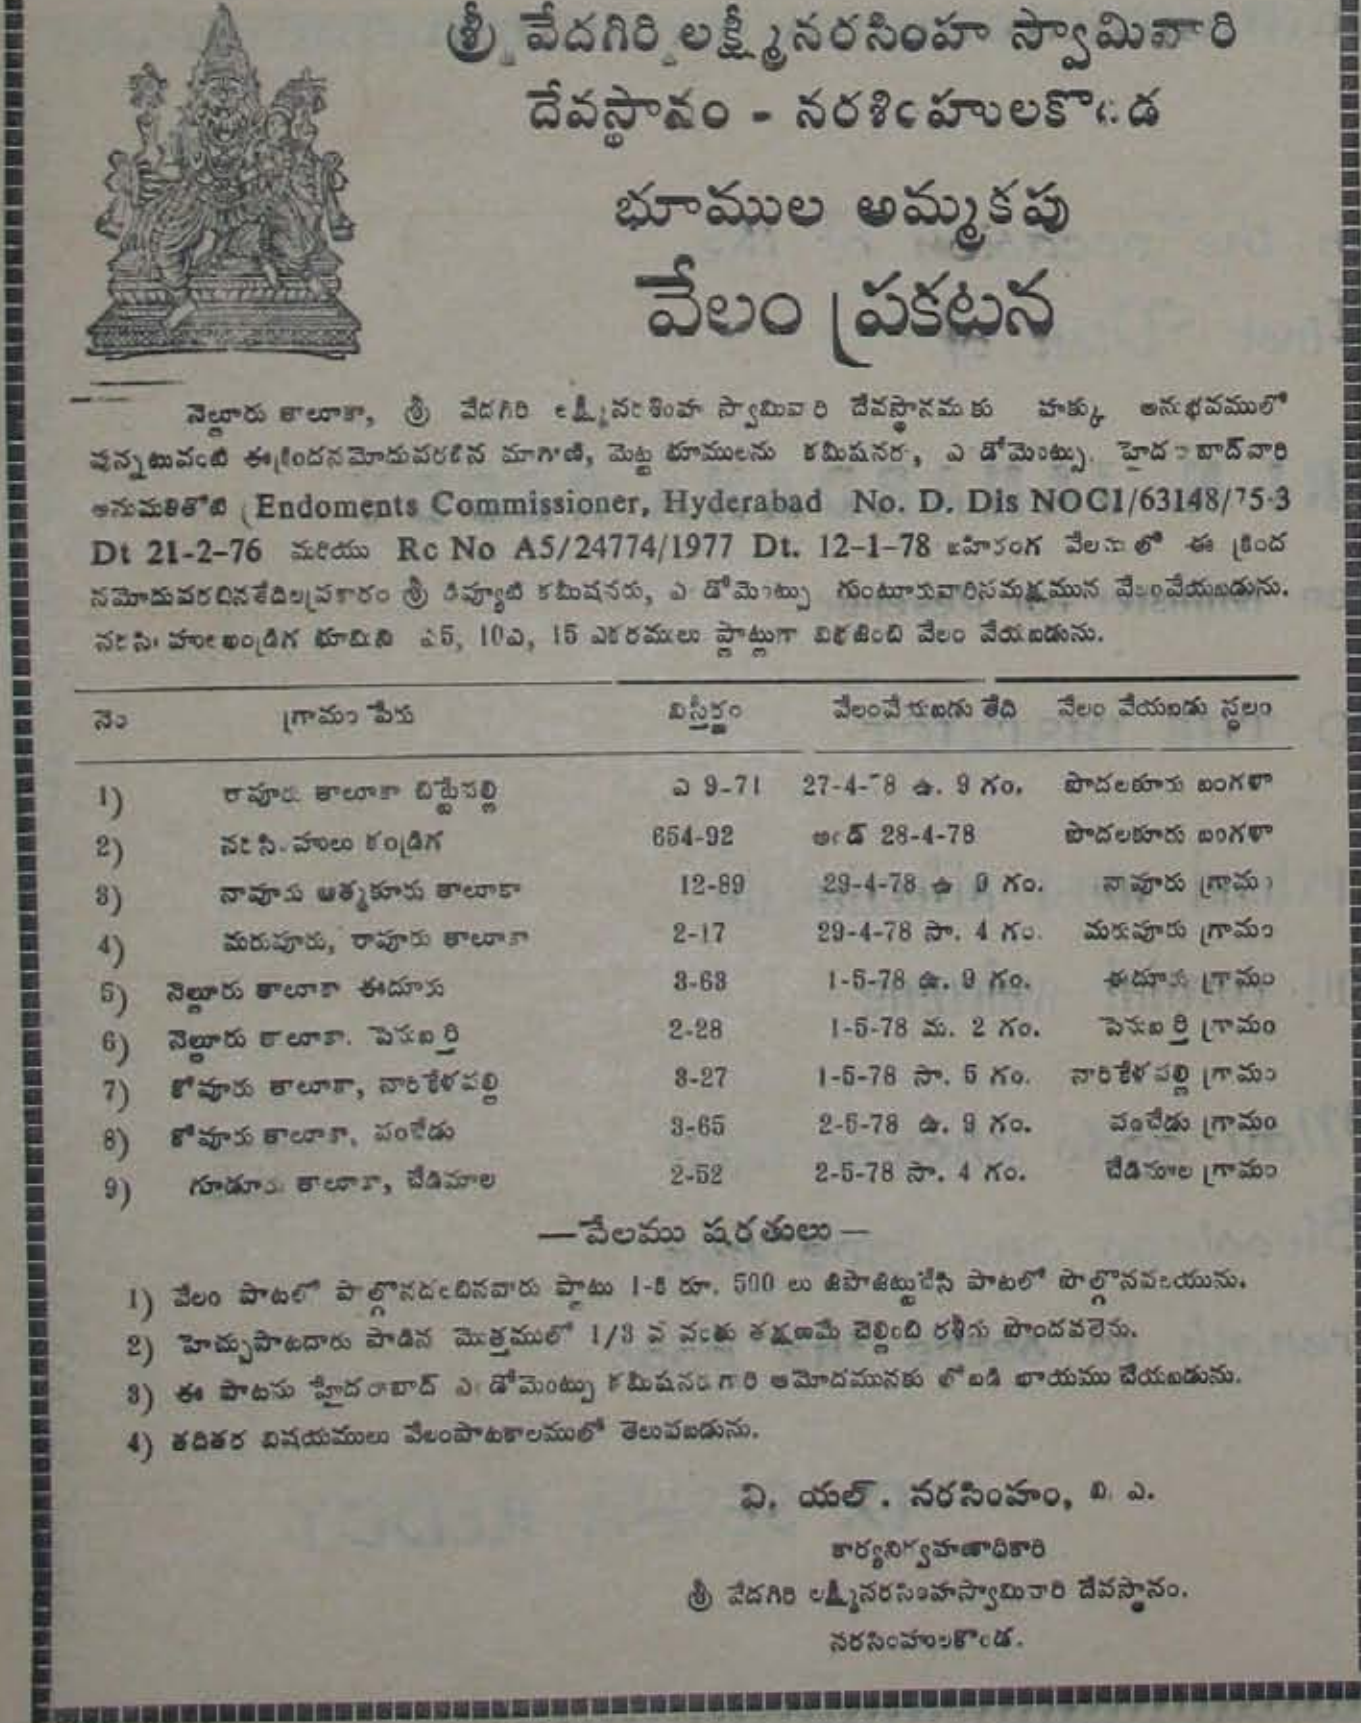 శ్రీ వేదగిరి లక్ష్మీనరసింహ స్వామివారి
దేవస్థానం - నరశింహులకొండ
భూముల అమ్మకపు
వేలం ప్రకటన
నెల్లూరు తాలూకా, శ్రీ వేదగిరి లక్ష్మీనరశింహ స్వామివారి దేవస్థానమకు హక్కు అనుభవములో
వున్నటువంటి ఈక్రిందనమోదుపరచిన మాగాణి, మెట్ట భూములను కమీషనరు, ఎండోమెంట్సు, హైదరాబాద్‌వారి
అనుమతితోటి (Endoments Commissioner, Hyderabad No. D. Dis NOC1/63148/75-3
Dt 21-2-76 మరియు Rc No A5/24774/1977 Dt. 12-1-78 బహిరంగ వేలములో ఈ క్రింద
నమోదుపరచినతేదీలప్రకారం శ్రీ డిప్యూటి కమీషనరు, ఎండోమెంట్సు గుంటూరువారిసమక్షమున వేలంవేయబడును.
నరసింహులఖండ్రిగ భూమిని ఎ5, 10ఎ, 15 ఎకరములు ప్లాట్లుగా విభజించి వేలం వేయబడును.
నెం గ్రామం పేరు విస్తీర్ణం వేలంవేయబడు తేది వేలం వేయబడు స్థలం
1) రాపూరు తాలూకా బిస్టేపల్లి ఎ 9-71 27-4-78 ఉ. 9 గం. పొదలకూరు బంగళా
2) నరసింహులు కండ్రిగ 654-92 అండ్ 28-4-78 పొదలకూరు బంగళా
3) నావూరు ఆత్మకూరు తాలూకా 12-89 29-4-78 ఉ 9 గం. నావూరు గ్రామం
4) మరుపూరు, రాపూరు తాలూకా 2-17 29-4-78 సా. 4 గం. మరుపూరు గ్రామం
5) నెల్లూరు తాలూకా ఈదూరు 3-63 1-5-78 ఉ. 9 గం. ఈదూరు గ్రామం
6) నెల్లూరు తాలూకా. పెనుబర్తి 2-28 1-5-78 మ. 2 గం. పెనుబర్తి గ్రామం
7) కోవూరు తాలూకా, నారికేళపల్లి 3-27 1-5-78 సా. 5 గం. నారికేళపల్లి గ్రామం
8) కోవూరు తాలూకా, పంచేడు 3-65 2-5-78 ఉ. 9 గం. పంచేడు గ్రామం
9) గూడూరు తాలూకా, చేడిమాల 2-52 2-5-78 సా. 4 గం. చేడిమాల గ్రామం
—వేలము షరతులు—
1) వేలం పాటలో పాల్గొనదలచినవారు ప్లాటు 1-కి రూ. 500 లు డిపాజిట్టుచేసి పాటలో పాల్గొనవలయును.
2) హెచ్చుపాటదారు పాడిన మొత్తములో 1/3 వ వంతు తక్షణమే చెల్లించి రశీదు పొందవలెను.
3) ఈ పాటను హైదరాబాద్ ఎండోమెంట్సు కమీషనరుగారి ఆమోదమునకు లోబడి ఖాయము చేయబడును.
4) తదితర విషయములు వేలంపాటకాలములో తెలుపబడును.
వి. యల్. నరసింహం, బి. ఎ.
కార్యనిర్వహణాధికారి
శ్రీ వేదగిరి లక్ష్మీనరసింహస్వామివారి దేవస్థానం.
నరసింహులకొండ.